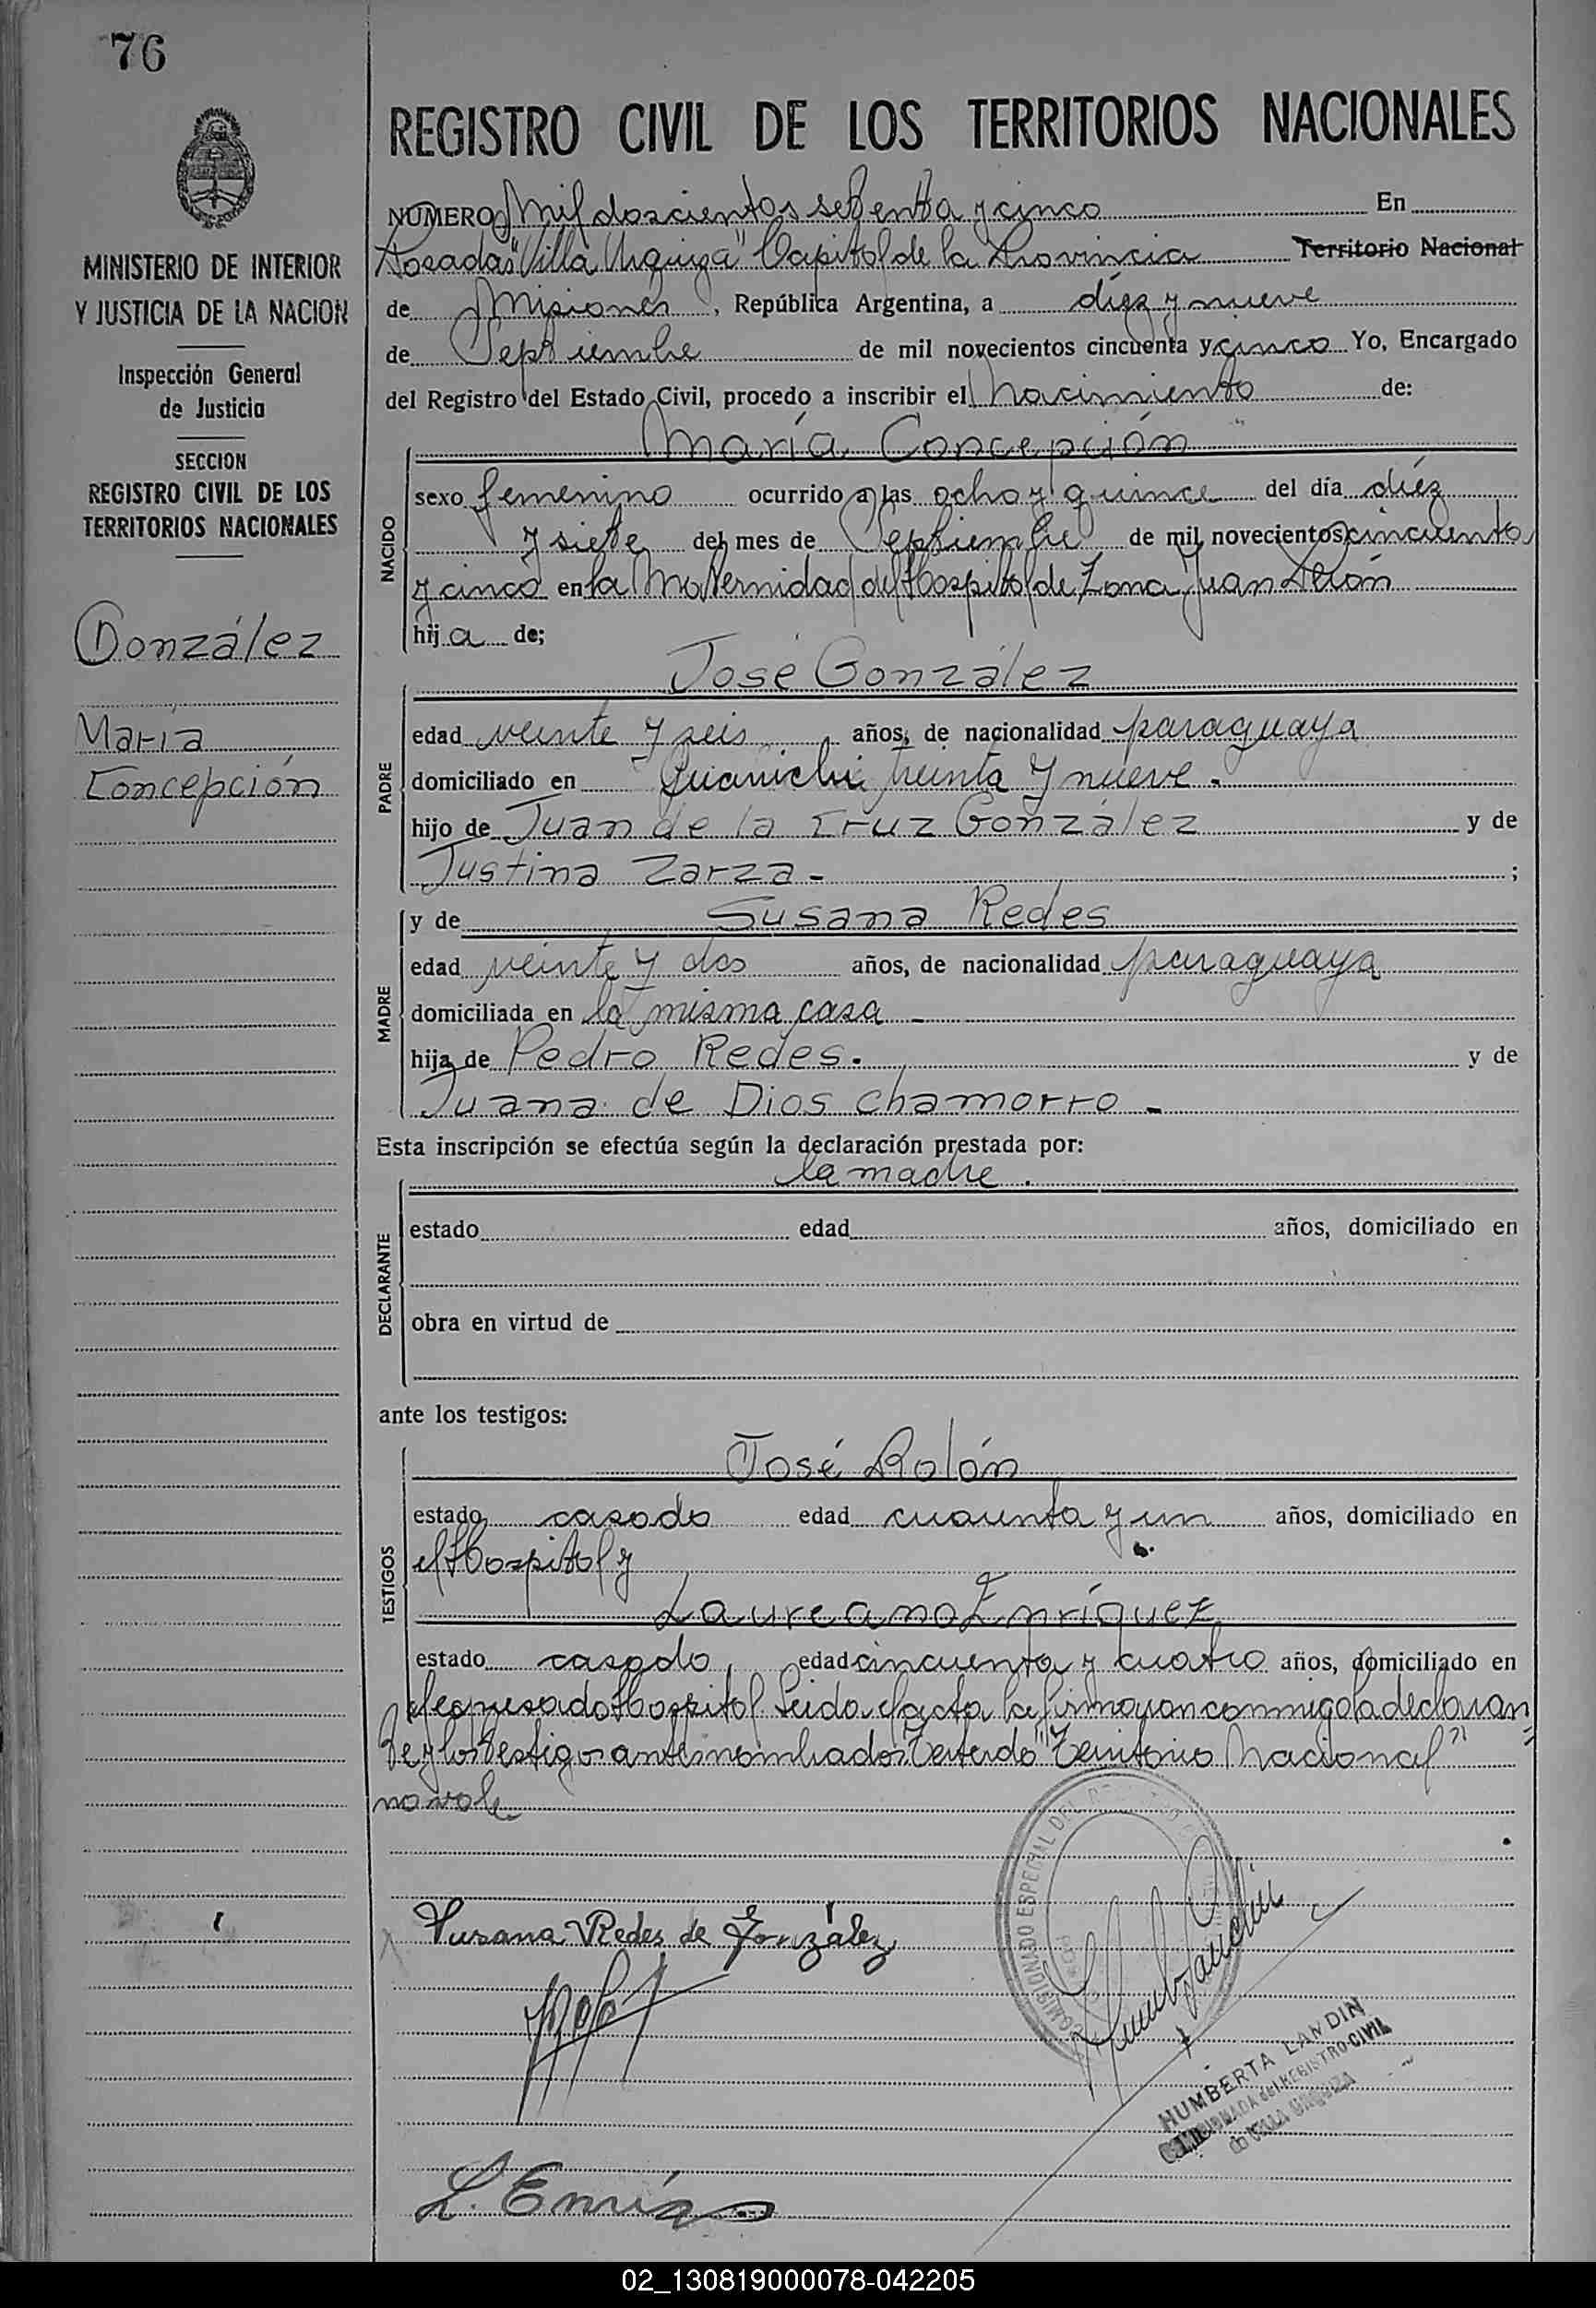 76
MINISTERIO DE INTERIOR
Y JUSTICIA DE LA NACION
Inspección General
de Justicia
SECCION
REGISTRO CIVIL DE LOS
TERRITORIOS NACIONALES
González
María
Concepción
REGISTRO CIVIL DE LOS TERRITORIOS NACIONALES
NUMERO Mil doscientos setenta y cinco En
Posadas "Villa Urquiza" Capital de la Provincia Territorio Nacional
de Misiones, República Argentina, a diez y nueve
de Septiembre de mil novecientos cincuenta y cinco Yo, Encargado
del Registro del Estado Civil, procedo a inscribir el Nacimiento de:
María Concepción
NACIDO
sexo femenino ocurrido a las ocho y quince del día diéz
y siete del mes de Septiembre de mil novecientos cincuenta
y cinco en la Maternidad del Hospital de Zona Juan Perón
hija de;
José González
PADRE
edad veinte y seis años, de nacionalidad paraguaya
domiciliado en treinta y nueve.
hijo de Juan de la Cruz González y de
Justina Zarza - ;
MADRE
y de Susana Redes
edad veinte y dos años, de nacionalidad paraguaya
domiciliada en la misma casa -
hija de Pedro Redes. y de
Juana de Dios Chamorro -
Esta inscripción se efectúa según la declaración prestada por:
la madre.
DECLARANTE
estado edad años, domiciliado en
obra en virtud de
ante los testigos:
José Rolón
TESTIGOS
estado casado edad cuarenta y un años, domiciliado en
el Hospital y
Laureano Enríquez
estado casado, edad cincuenta y cuatro años, domiciliado en
el expresado Hospital. Leida el acta la firmaron conmigo la declaran=
te y los testigos antes nombrados. Testado "Territorio Nacional"
no vale
Susana Redes de González
L. Enríq
COMISIONADO ESPECIAL DEL
HUMBERTA LANDIN
COMISIONADA del REGISTRO CIVIL
de VILLA URQUIZA
02_130819000078-042205